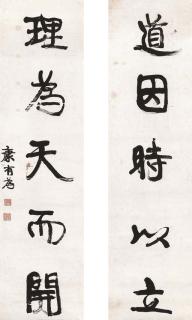 道因時以立
理為天而開
康有為